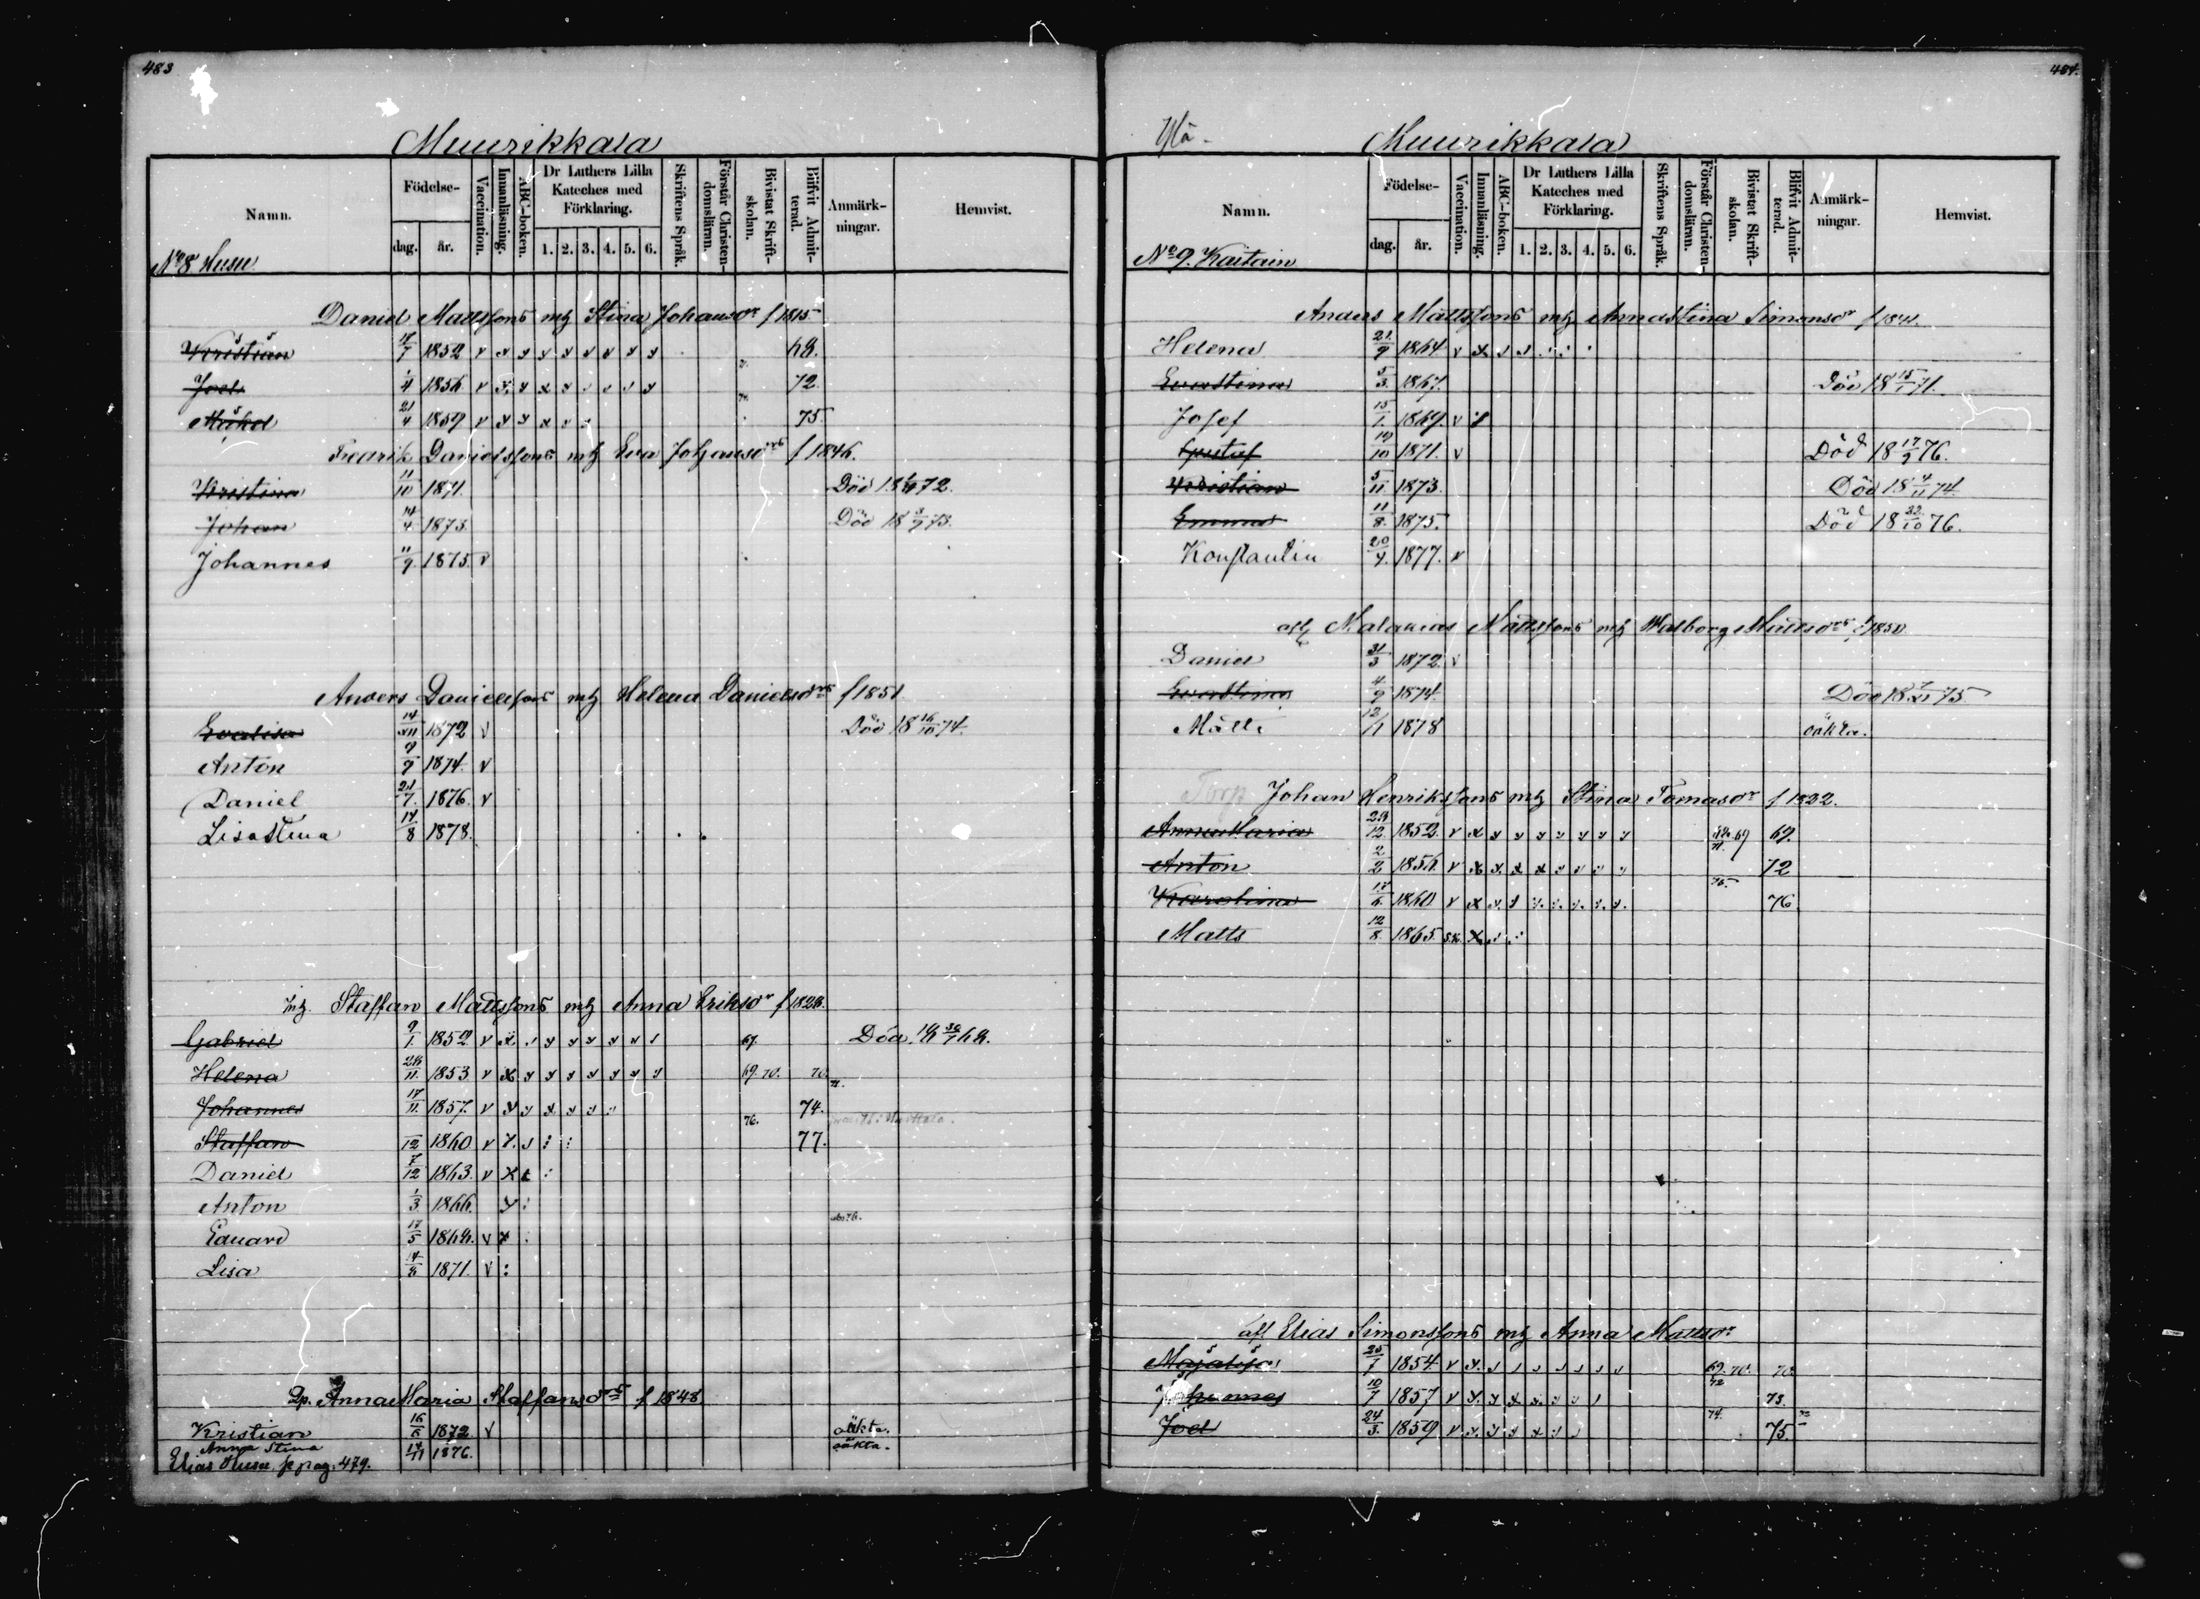 483
Muurikkala
Namn.
Födelse-
dag. år.
Vaccination.
Innanläsning.
ABC-boken.
Dr Luthers Lilla Kateches med Förklaring.
1. 2. 3. 4. 5. 6.
Skriftens Språk.
Förstår Christen-domsläran.
Bivistat Skrift-skolan.
Blifvit Admit-terad.
Anmärk-ningar.
Hemvist.
No 8 Husu
Daniel Mattssons mh Stina Johansdr f 1815
Kristian 7 1852 v 68.
Joel 1/4 1856 v 72.
Mikel 21/4 1859 v 75.
Fredrik Danielssons mh Eva Johansdrs f 1846.
Kristina 11/10 1871. Död 18 72.
Johan 14/4 1873. Död 18 3/9 73.
Johannes 11/9 1875 v
Anders Danielssons mh Helena Danielsdrs f 1851
Evalisa 14/XII 1872 v Död 18 16/10 74.
Anton 9/9 1874. v
Daniel 21/7. 1876. v
Lisastina 17/8 1878.
Staffan Mattssons mh Anna Eriksdr f 1828.
Gabriel 9/1. 1852 v 67. Död 18 30/1 68.
Helena 28/11. 1853 v 69. 70. 70.
Johannes 17/11. 1857. v 74.
Staffan 12 1860 v 76. 77.
Daniel 7/12 1863. v
Anton 1/3 1866.
Eduard 17/5 1868. v
Lisa 14/8 1871. v
Anna Maria Staffansdrs f 1848
Kristian 16/6 1872. v oäkta.
Anna Stina 1876. oäkta.
Elias Husu, p pag. 479.
484.
Muurikkala
Namn.
Födelse-
dag. år.
Vaccination.
Innanläsning.
ABC-boken.
Dr Luthers Lilla Kateches med Förklaring.
1. 2. 3. 4. 5. 6.
Skriftens Språk.
Förstår Christen-domsläran.
Bivistat Skrift-skolan.
Blifvit Admit-terad.
Anmärk-ningar.
Hemvist.
No 9. Kaitain
Anders Mattssons mh Annastina Simonsdr f 1841.
Helena 21/9 1864 v
Evastina 5/3. 1867. Död 18 15/1 71.
Josef 15/1. 1869. v
Gustaf 19/10 1871. v Död 18 17/9 76.
Kristian 5/11 1873. Död 18 4/11 74
Emma 11/8. 1875. Död 18 22/10 76.
Konstantin 20/4. 1877. v
Malakias Mattssons mh Walborg Mattsdrs f 1850
Daniel 31/3 1872 v
Evastina 4/9 1874. Död 18 75
Matti 12/1 1878 oäkta.
Torp Johan Henrikssons mh Stina Tomasdr f 1822.
Anna Maria 23/12 1852. v 69 69.
Anton 2/2 1856. v 72
Karolina 17/6 1860 v 75. 76
Matts 12/8. 1865
afl Elias Simonssons mh Anna Mattsdr
Majalisa 25/7 1854 v 69. 70. 70.
Johannes 10/7 1857 v 72 73.
Joel 24/3. 1859 v 74. 75.